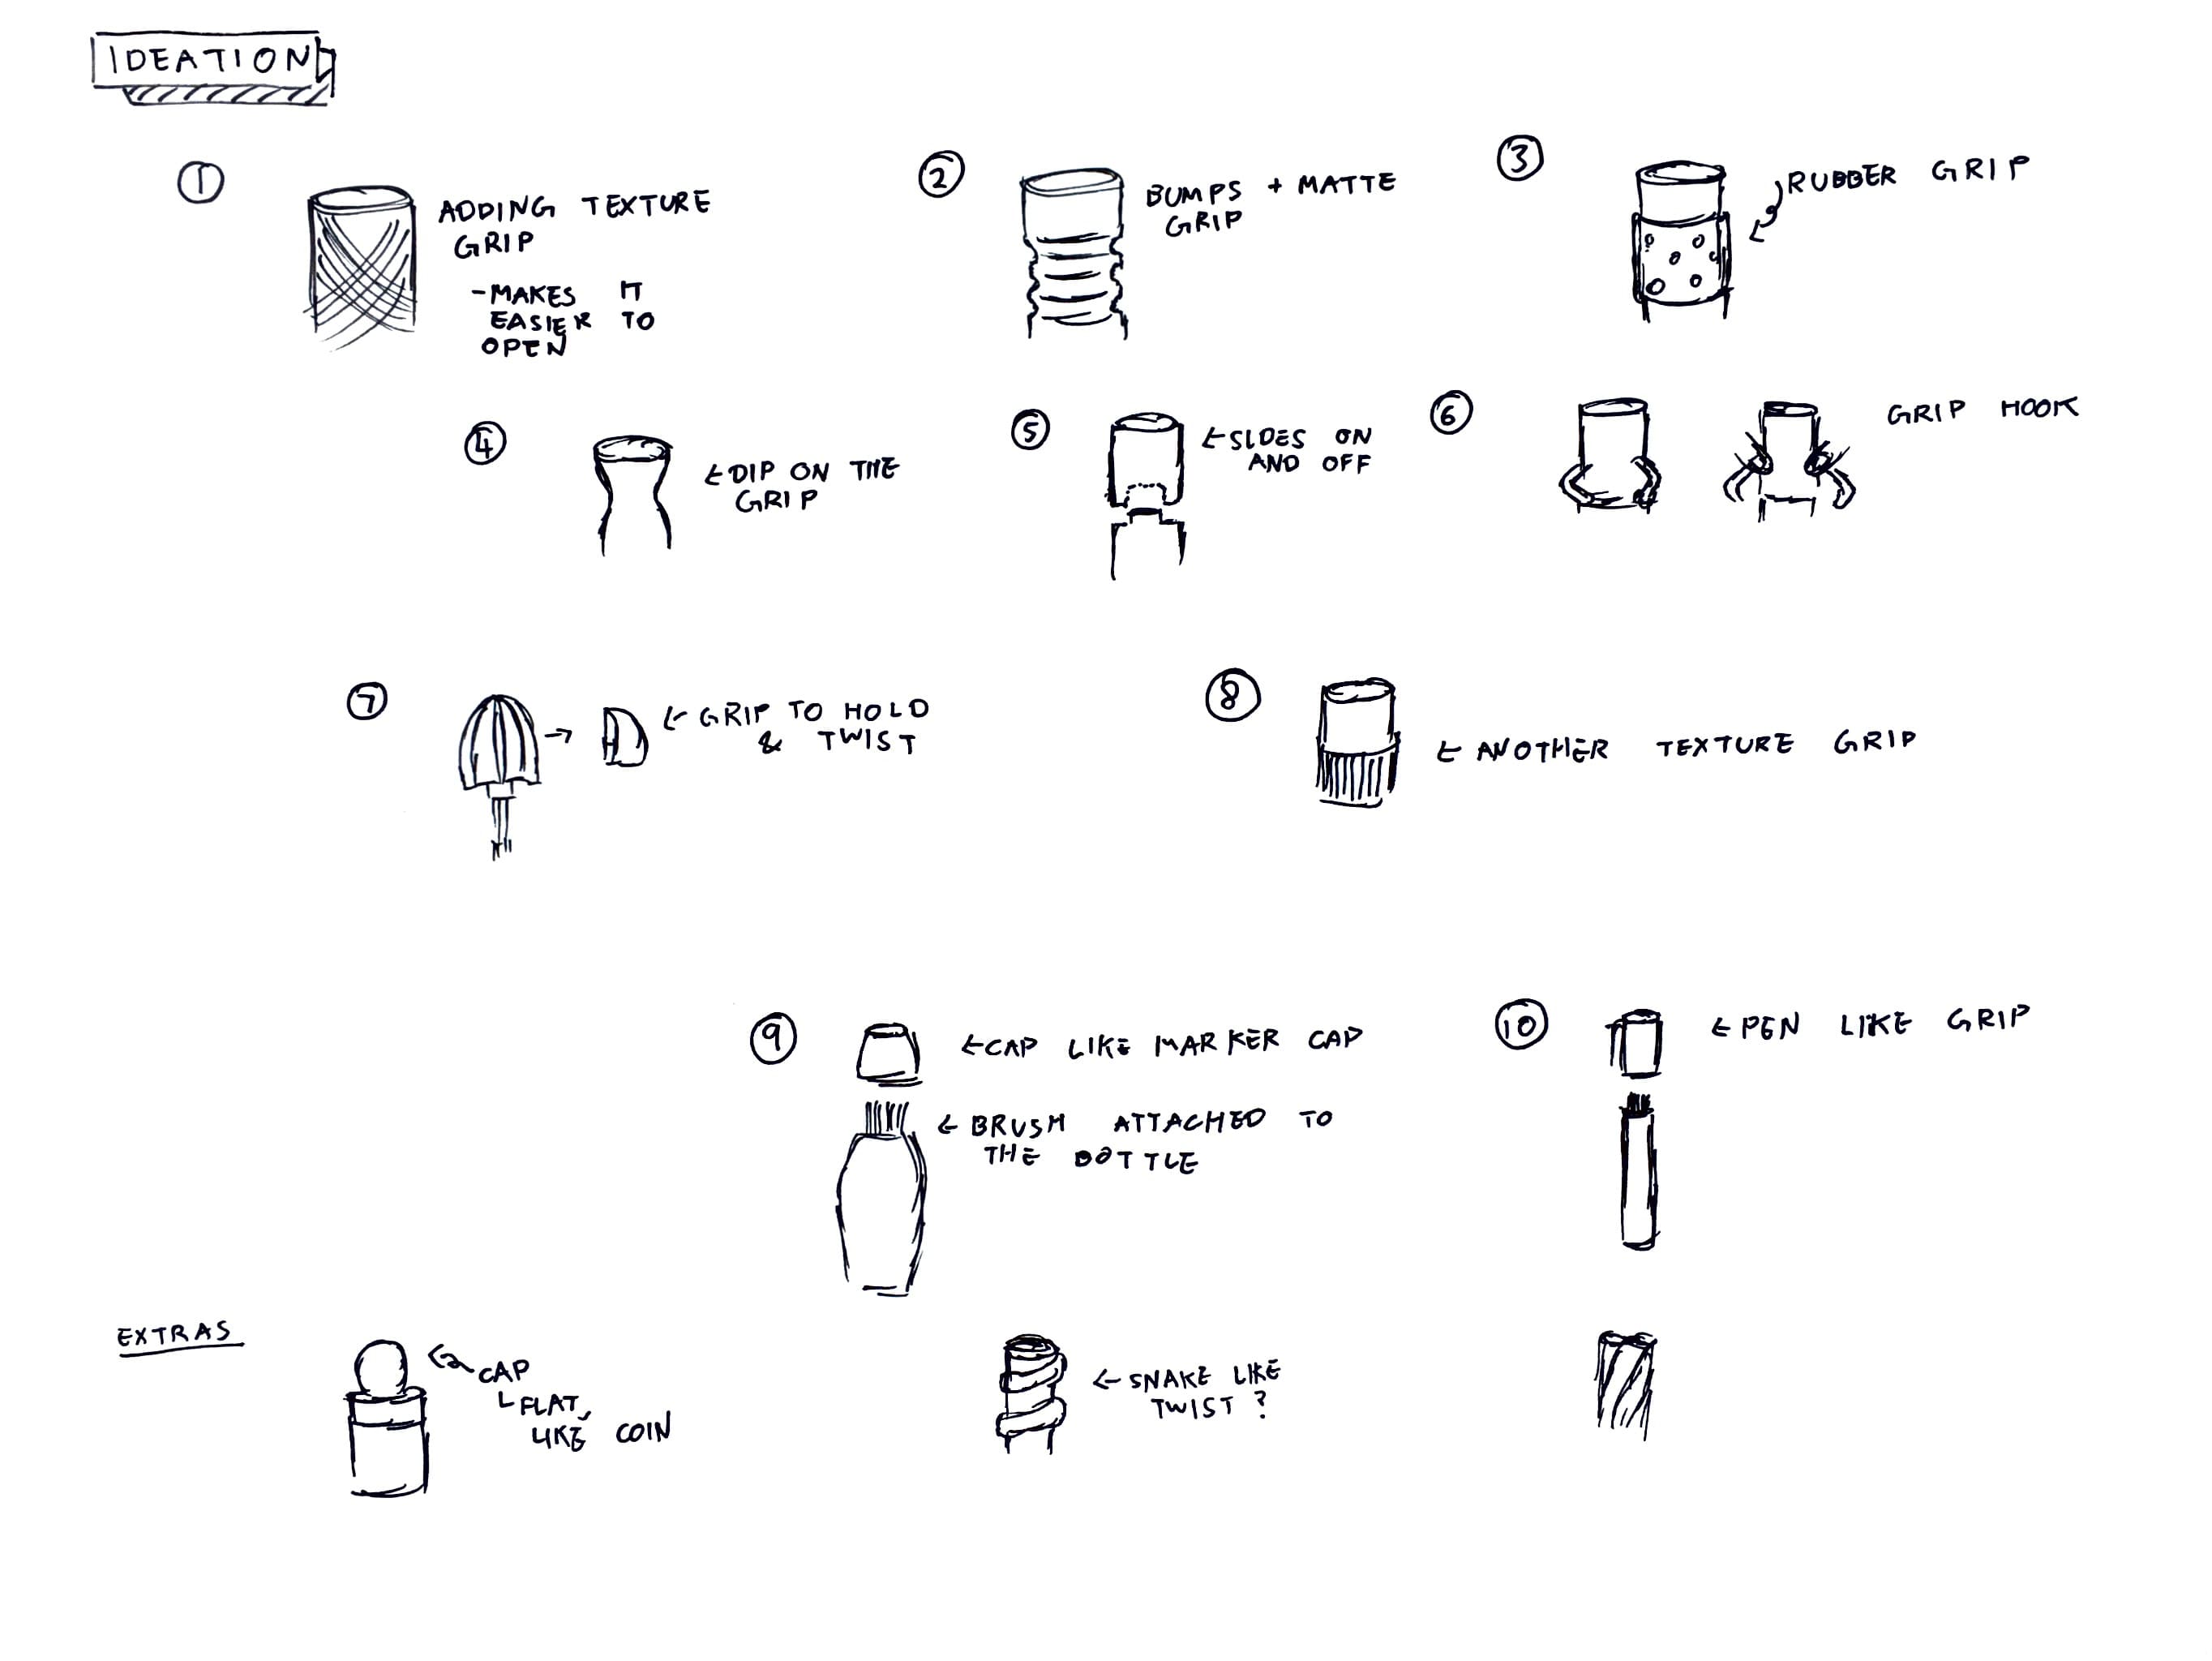 IDEATION
1
ADDING TEXTURE
GRIP
- MAKES IT
EASIER TO
OPEN
2
BUMPS + MATTE
GRIP
3
RUBBER GRIP
4
← DIP ON THE
GRIP
5
← SLDES ON
AND OFF
6
GRIP HOOK
7
← GRIP TO HOLD
& TWIST
8
← ANOTHER TEXTURE GRIP
9
← CAP LIKE MARKER CAP
← BRUSH ATTACHED TO
THE BOTTLE
10
← PEN LIKE GRIP
EXTRAS
CAP
FLAT,
LIKE COIN
← SNAKE LIKE
TWIST ?